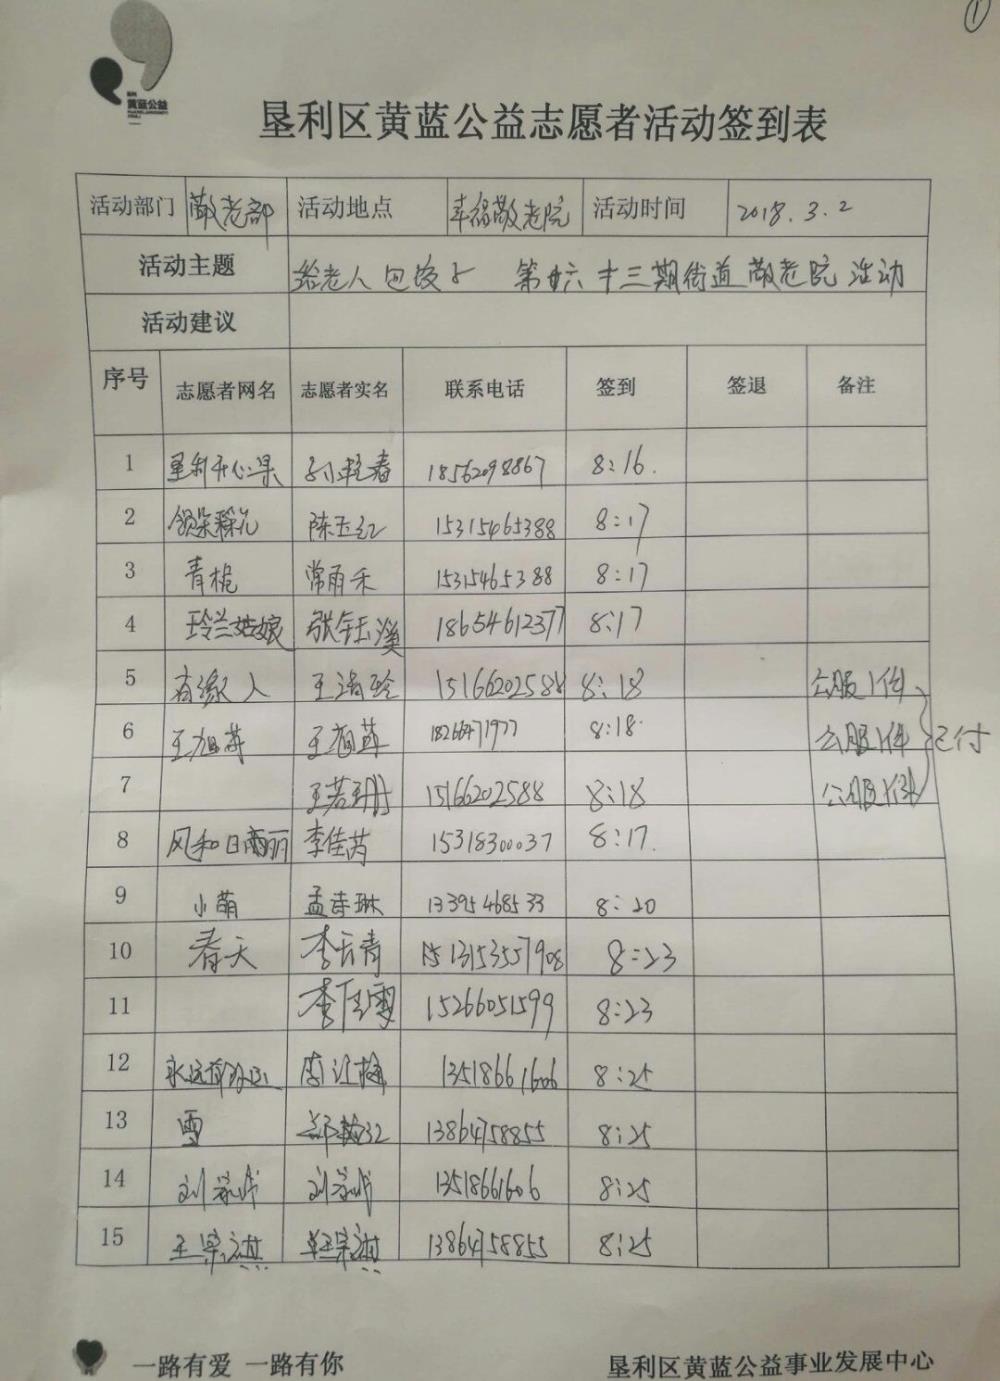 ①
黄蓝公益
垦利区黄蓝公益志愿者活动签到表
活动部门 敬老部 活动地点 幸福敬老院 活动时间 2018.3.2
活动主题 给老人包饺子 第廿六十三期街道敬老院活动
活动建议
序号 志愿者网名 志愿者实名 联系电话 签到 签退 备注
1 垦利开心果 孙艳春 18562098867 8:16.
2 陈玉红 15315465388 8:17
3 青桅 常雨禾 15315465388 8:17
4 玲兰姑娘 张钰溪 18654612377 8:17
5 有缘人 王清玲 15166202588 8:18 公服1件
6 王旭萍 王旭萍 18266471977 8:18 公服1件 已付
7 王若玥 15166202588 8:18 公服1件
8 风和日丽 李佳芮 15318300037 8:17.
9 小萌 孟诗琳 13395468533 8:20
10 春天 李云青 13153557908 8:23
11 李佳雪 15266051599 8:23
12 13518661606 8:25
13 雪 13864758855 8:25
14 13518661606 8:25
15 王宗祺 王宗祺 13864758855 8:25
一路有爱 一路有你
垦利区黄蓝公益事业发展中心